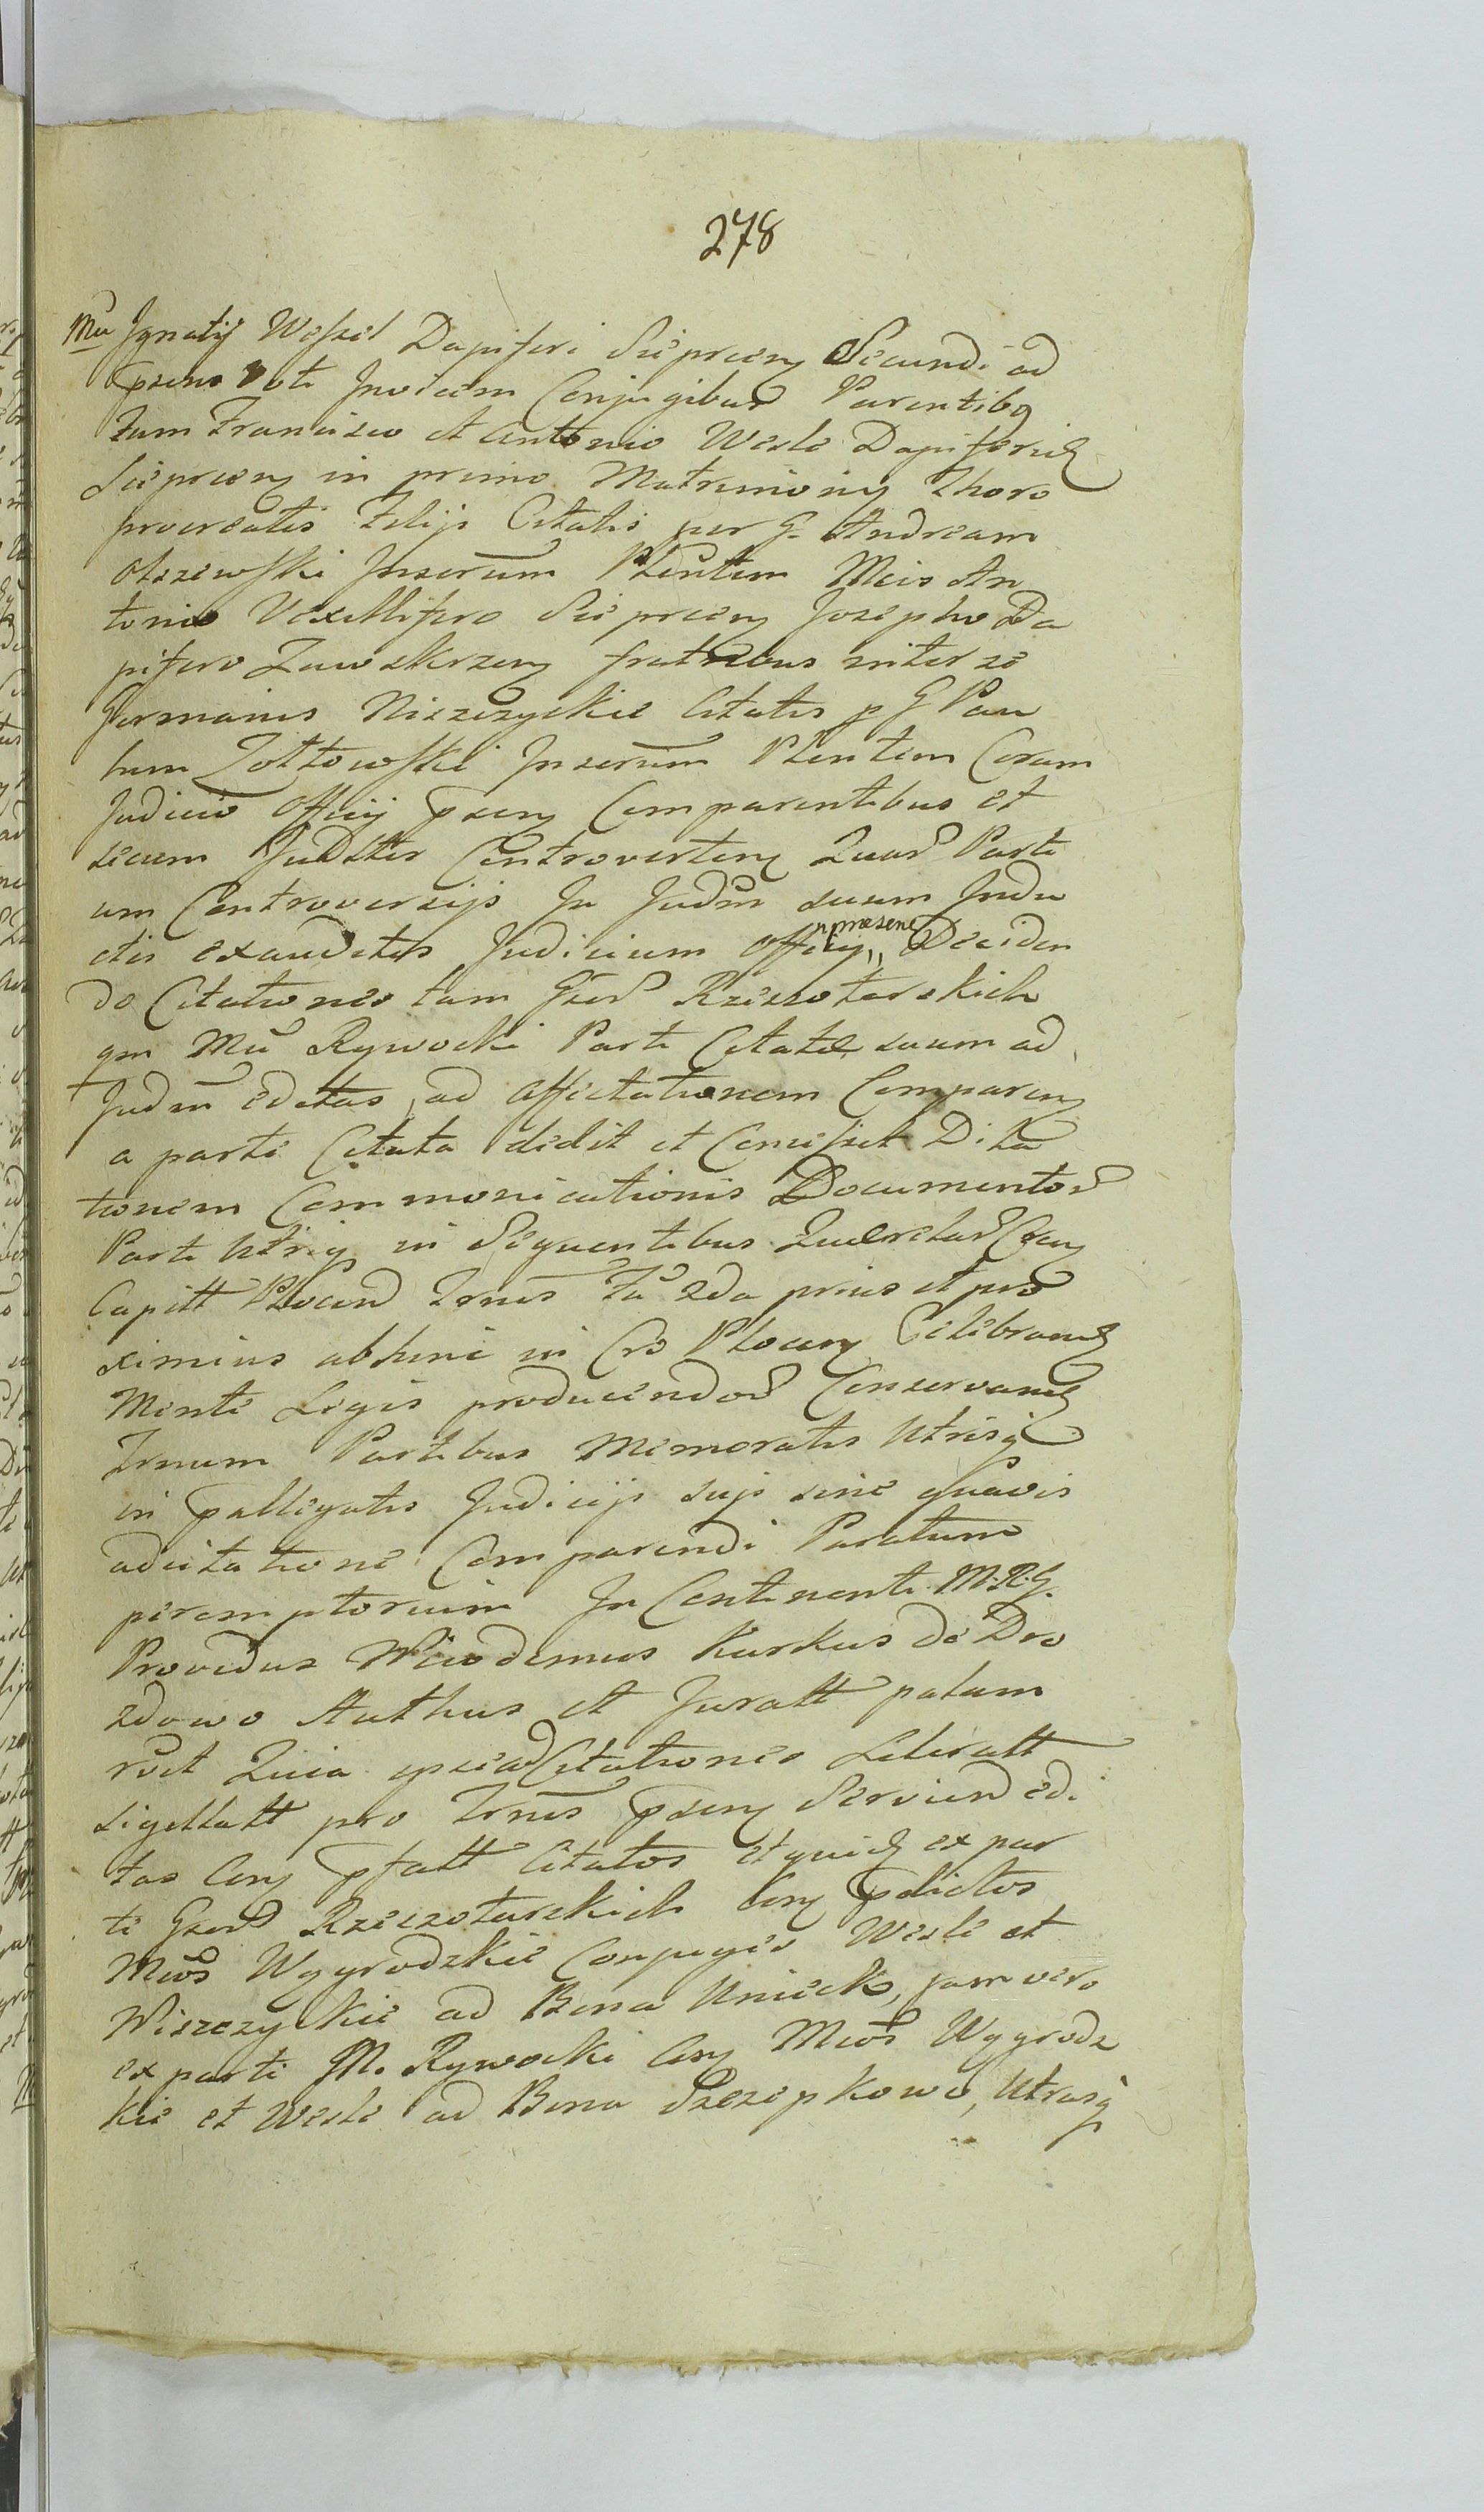 278
Mci Ignatij Weszel Dapiferi Sieprcen Secundi ad
psens Voti Invicem Conjugibus Parentibq
tum Francisco et Antonio Wesle Dapiferid
Sieprcen in primo Matrimonij Thoro
procreatis Filijs Citatis per G. Andream
Olszewski Inserum Plentem Mcis An
tonio Vexillifero Sieprcen Josepho Da
pifero Zawskrzen fratribus inter se
Germanis Niszczyckie Citatis p G Pau
lum Zołtowski Inserum Plentem Coram
Judicio Officij psen Comparentibus et
secum Judtter Controverten Quar Parti
um Controversijs In Judm suum Indu
ctis exauditis Judicium Officij,, npraesens Deciden
do Citationes tam Gser Rzeszotarskich
qm Mci Rywocki Parti Citatae suum ad
Judm editas, ad affectationem Comparen
a parte Citata dedit et Concessit Dila
tionem Communicationis Documentor
Parti Utriq in Sequentibus Querelar Cren
Capitt Plocen Trnis Fu 2da prius et pro
ximius abhinc in Cro Plocen Celebrand
Mente Legis producendor Conservand
Trnum Partibus Memoratis Utrisq
in pallegatis Judicijs suis sine quavis
adcitatione Comparendi Paratum
peremptorium In Continenti M.R.G.
Providus Nicodemus Kurkus de Dro
zdowo Authus et Juratt palam
rcit Quia Citationes Literatt
Sigillatt pro Trnis psen Servien edi
tas Con pfatt Citatos et quid ex par
te Gser Rzeszotarskich Con pdictos
Mcos Wygrodzkie Conjuges Wesle et
Niszczyckie ad Bona Unieck, jam vero
ex parte M. Rywocki Con Mcos Wygrodz
kie et Wesle ad Bona Szczepkowo, Utrasq